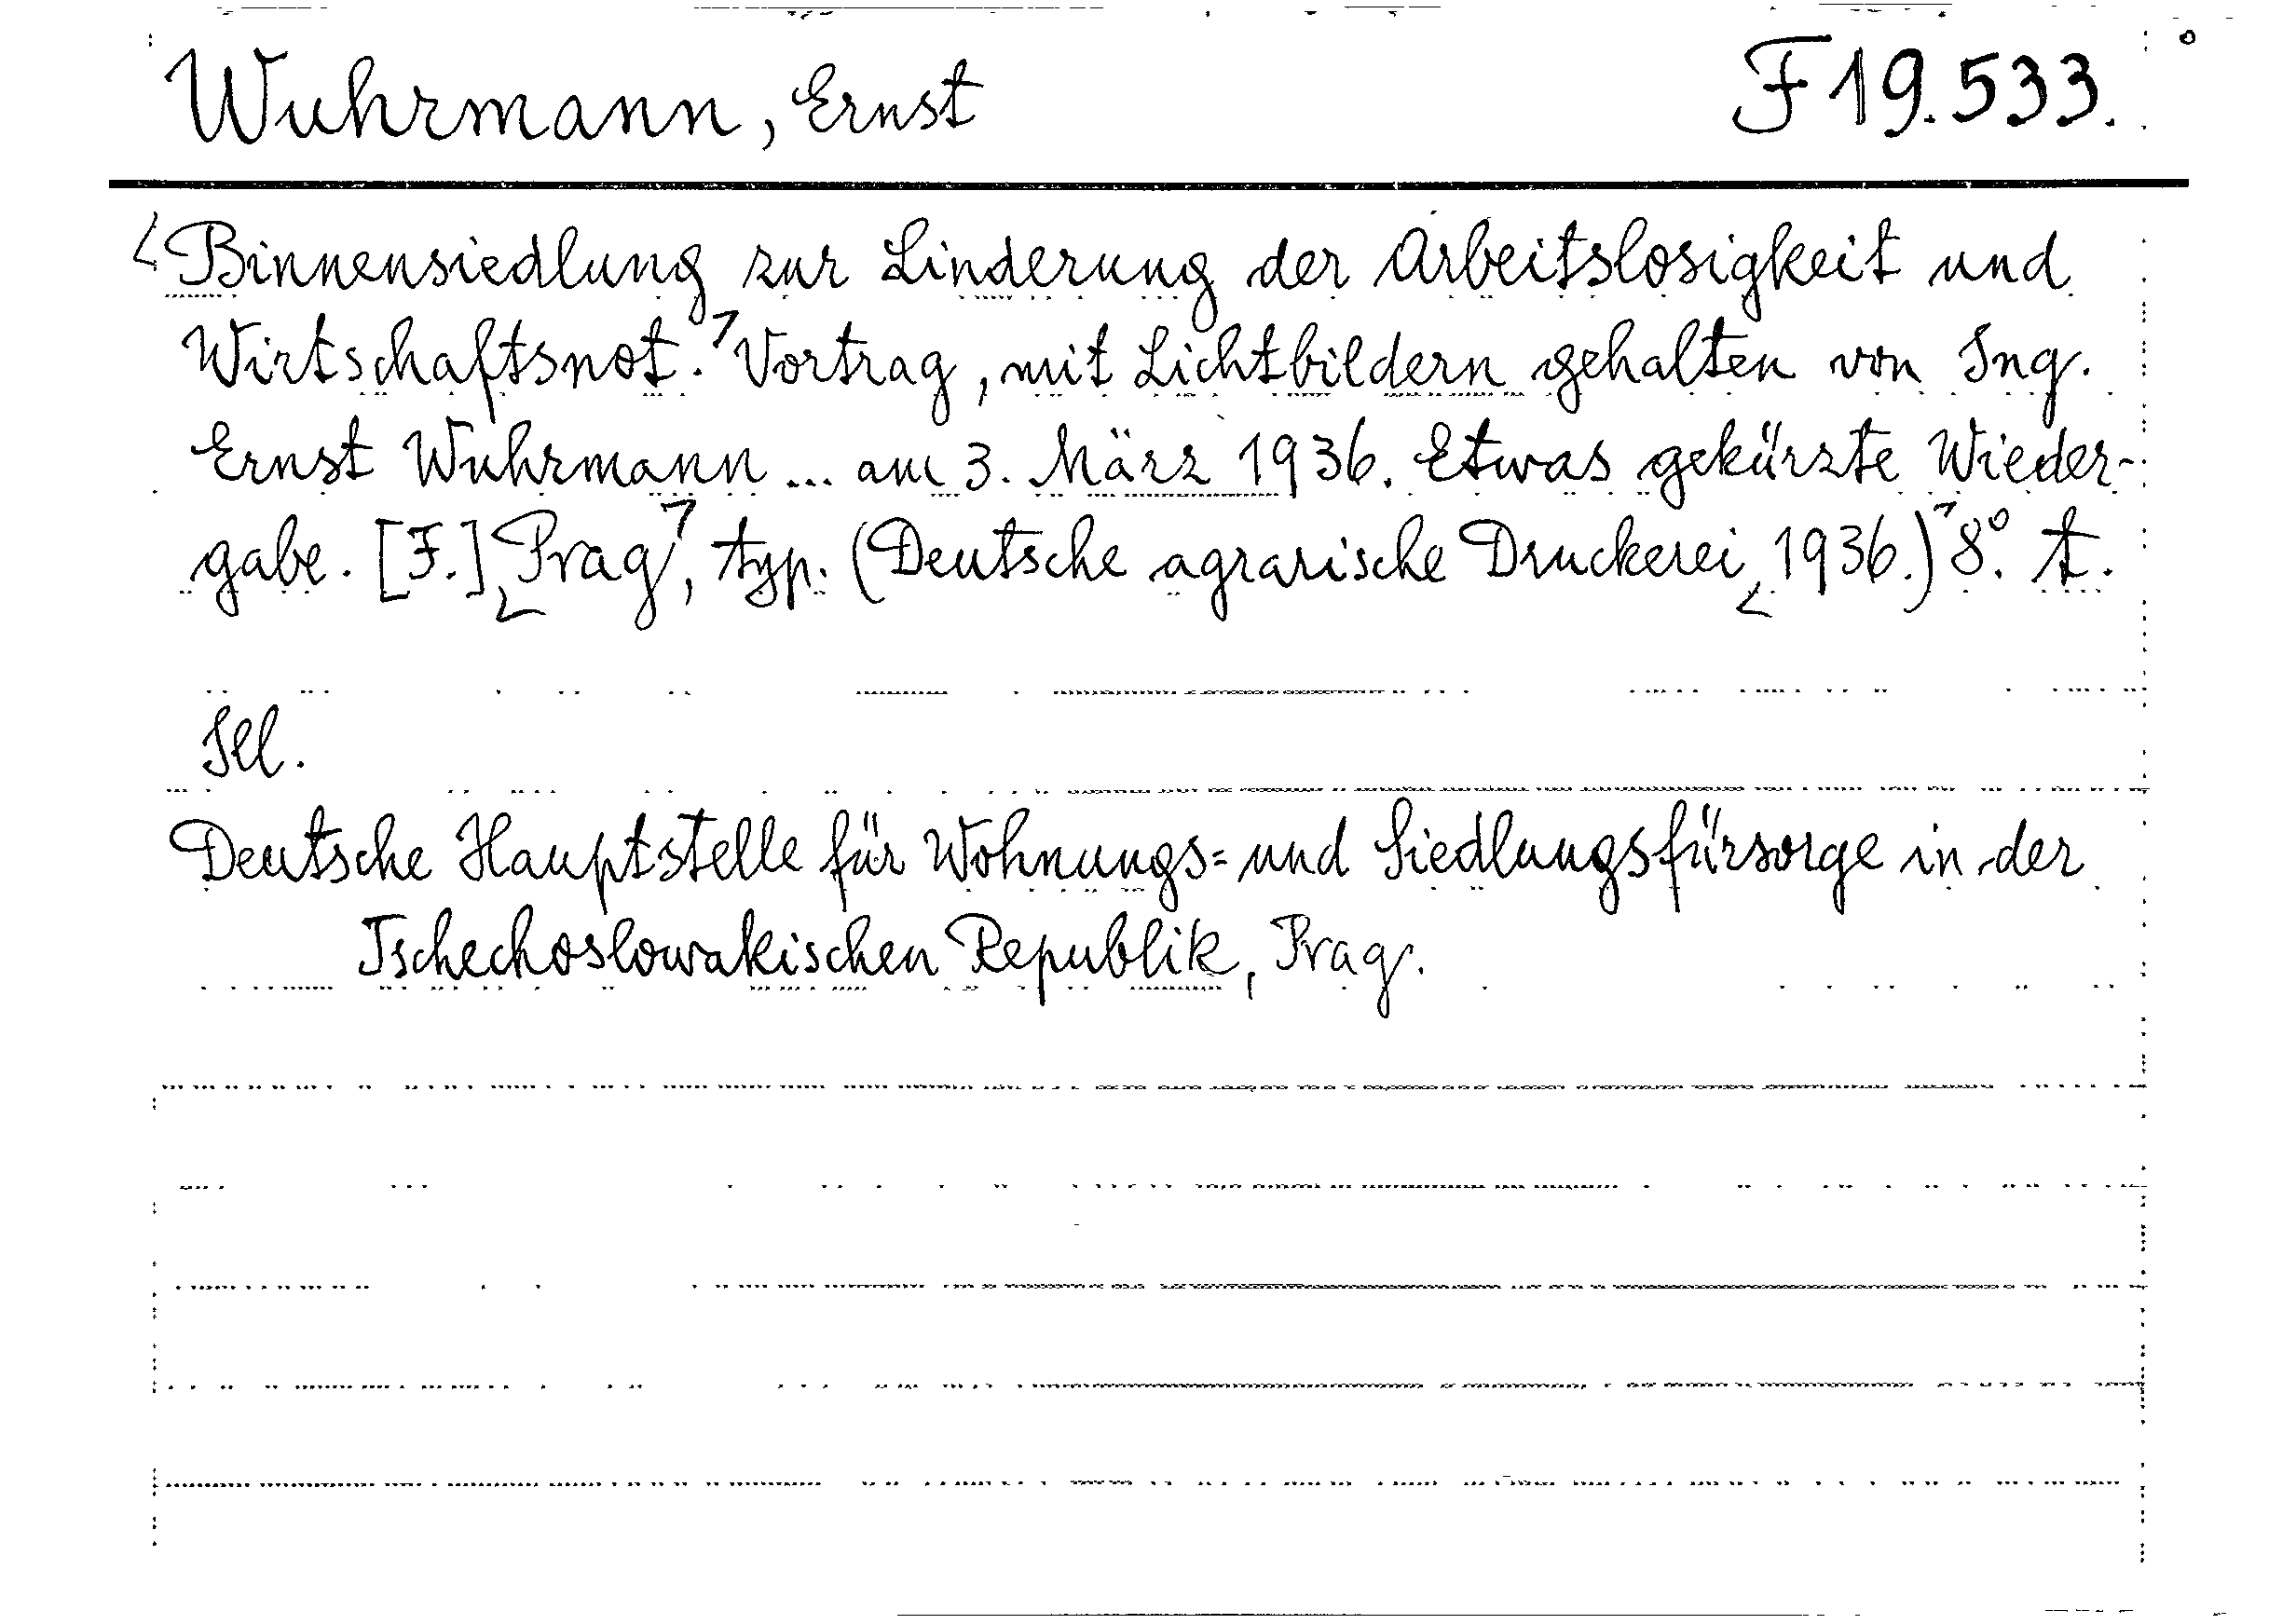 Wuhrmann, Ernst F 19.533.
Binnensiedlung zur Linderung der Arbeitslosigkeit und
Wirtschaftsnot. Vortrag, mit Lichtbildern gehalten von Ing.
Ernst Wuhrmann ... am 3. März 1936. Etwas gekürzte Wieder-
gabe. [F.] Prag, typ. (Deutsche agrarische Druckerei 1936.) 8°. A.
Ill.
Deutsche Hauptstelle für Wohnungs= und Siedlungsfürsorge in der
Tschechoslowakischen Republik, Prag.